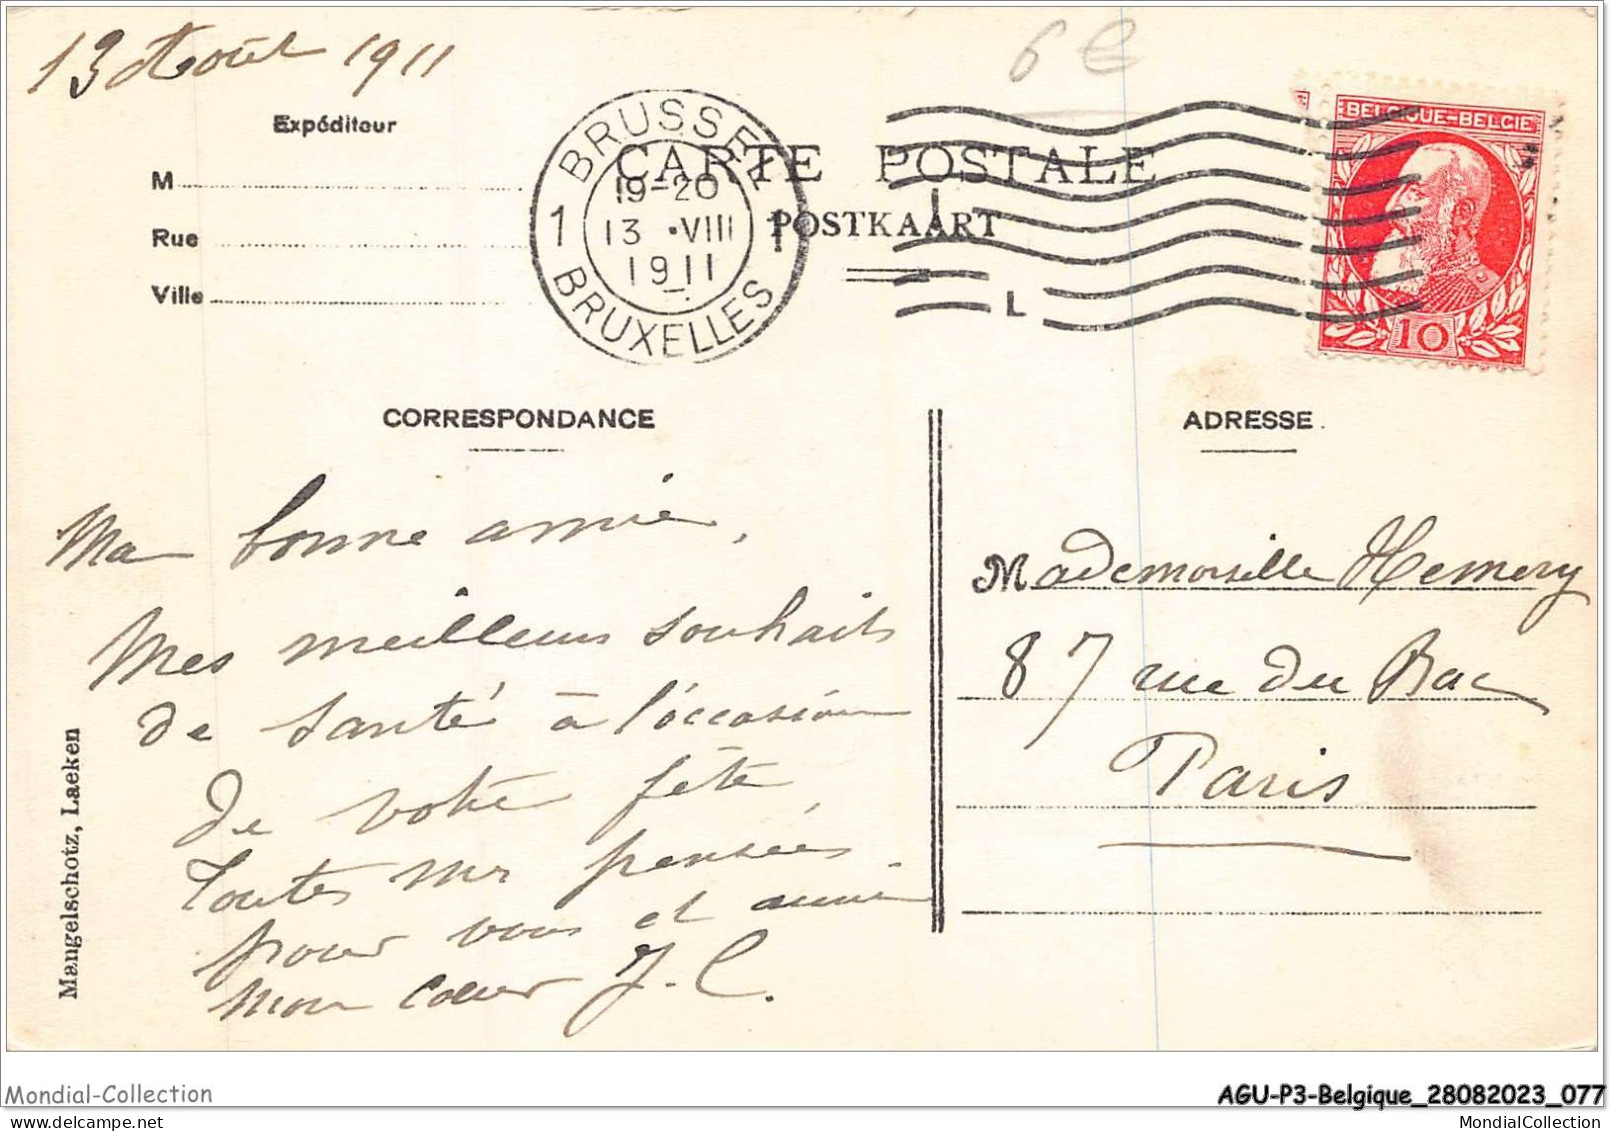 13 Août 1911
6 €
Expéditeur
M
Rue
Ville
BRUSSEL
19-20
1 13 •VIII 1
1911
BRUXELLES
CARTE POSTALE
POSTKAART
L
BELGIQUE-BELGIE
10
CORRESPONDANCE
ADRESSE
Ma bonne amie,
Mes meilleurs souhaits
de santé à l'occasion
de votre fête,
Toutes mes pensées
pour vous et aussi
mon coeur J. C.
Mademoiselle Hemery
87 rue du Bac
Paris
Mangelschotz, Laeken
Mondial-Collection
AGU-P3-Belgique_28082023_077
MondialCollection